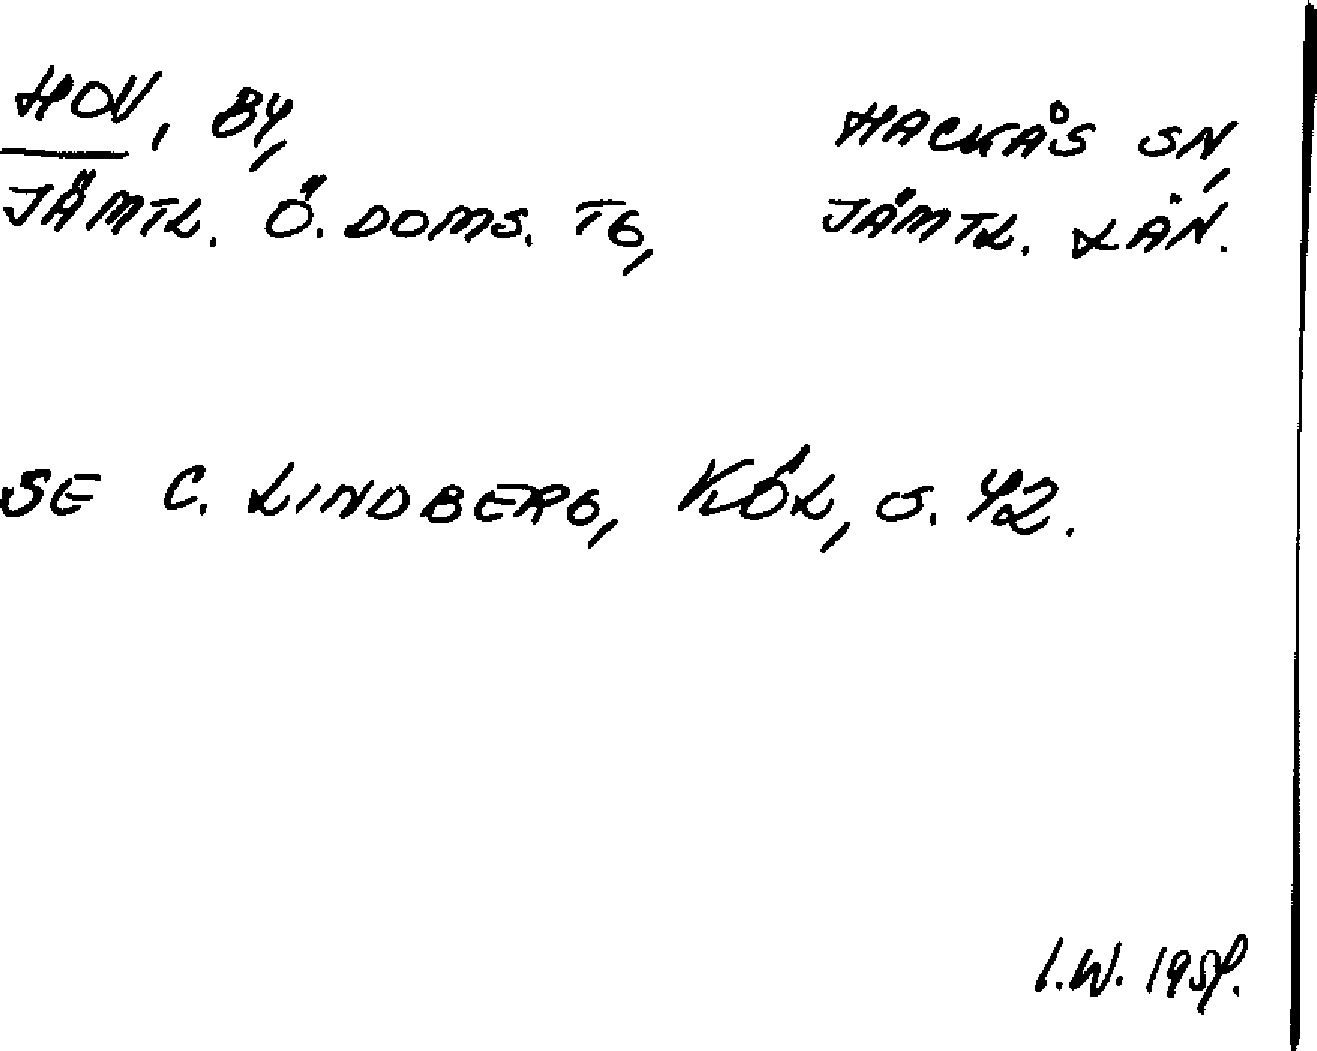 HOV, BY, HACKÅS SN,
JÄMTL. Ö. DOMS. TG, JÄMTL. LÄN.
SE C. LINDBERG, KÖL, S. 42.
I.W.